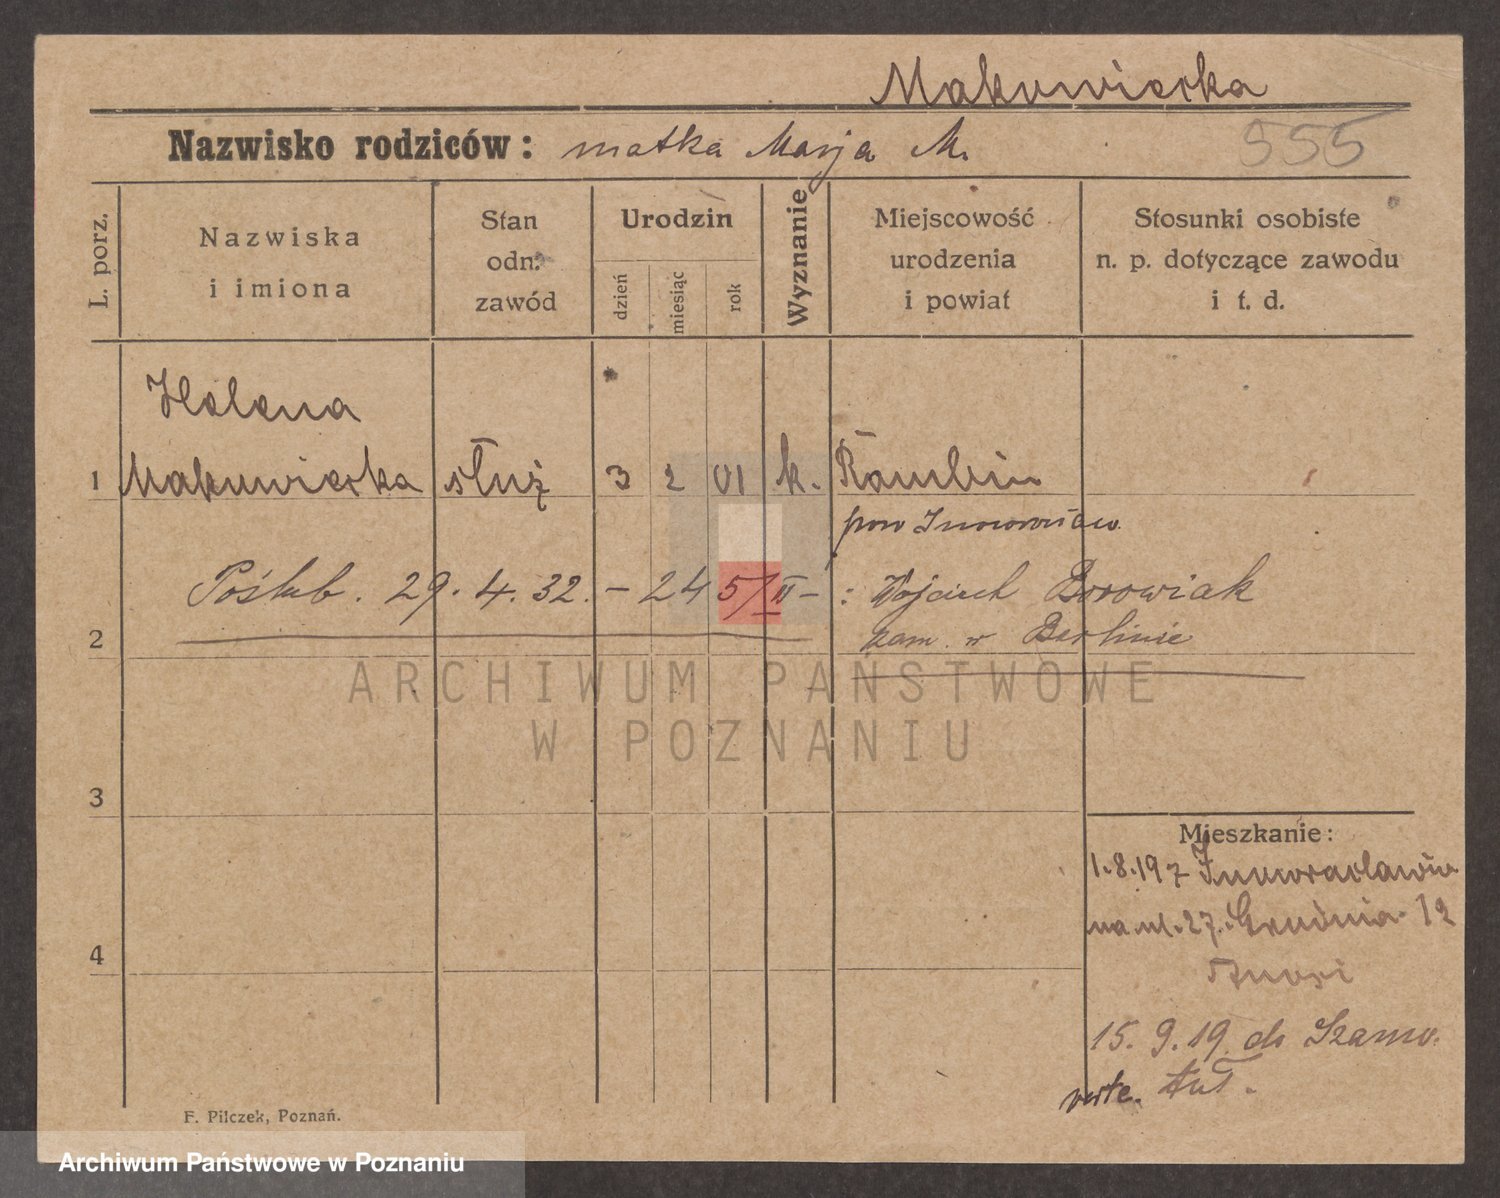 Makuwierka
Nazwisko rodziców: matka Marja M.
555
L. porz.
Nazwiska
i imiona
Stan
odn.
zawód
Urodzin
dzień
miesiąc
rok
Wyznanie
Miejscowość
urodzenia
i powiat
Stosunki osobiste
n. p. dotyczące zawodu
i t. d.
Helena
1 Makuwierka służ 3 2 VI k.
pow
Poślub. 29. 4. 32. – 24 5/II – : Wojciech Borowiak
2 zam. w Berlinie
ARCHIWUM PAŃSTWOWE
W POZNANIU
3
Mieszkanie:
1.8.19 z
na ul. 27. Grudnia 12
4
15. 9. 19 do Szamo.
verte. tuł.
F. Pilczek, Poznań.
Archiwum Państwowe w Poznaniu